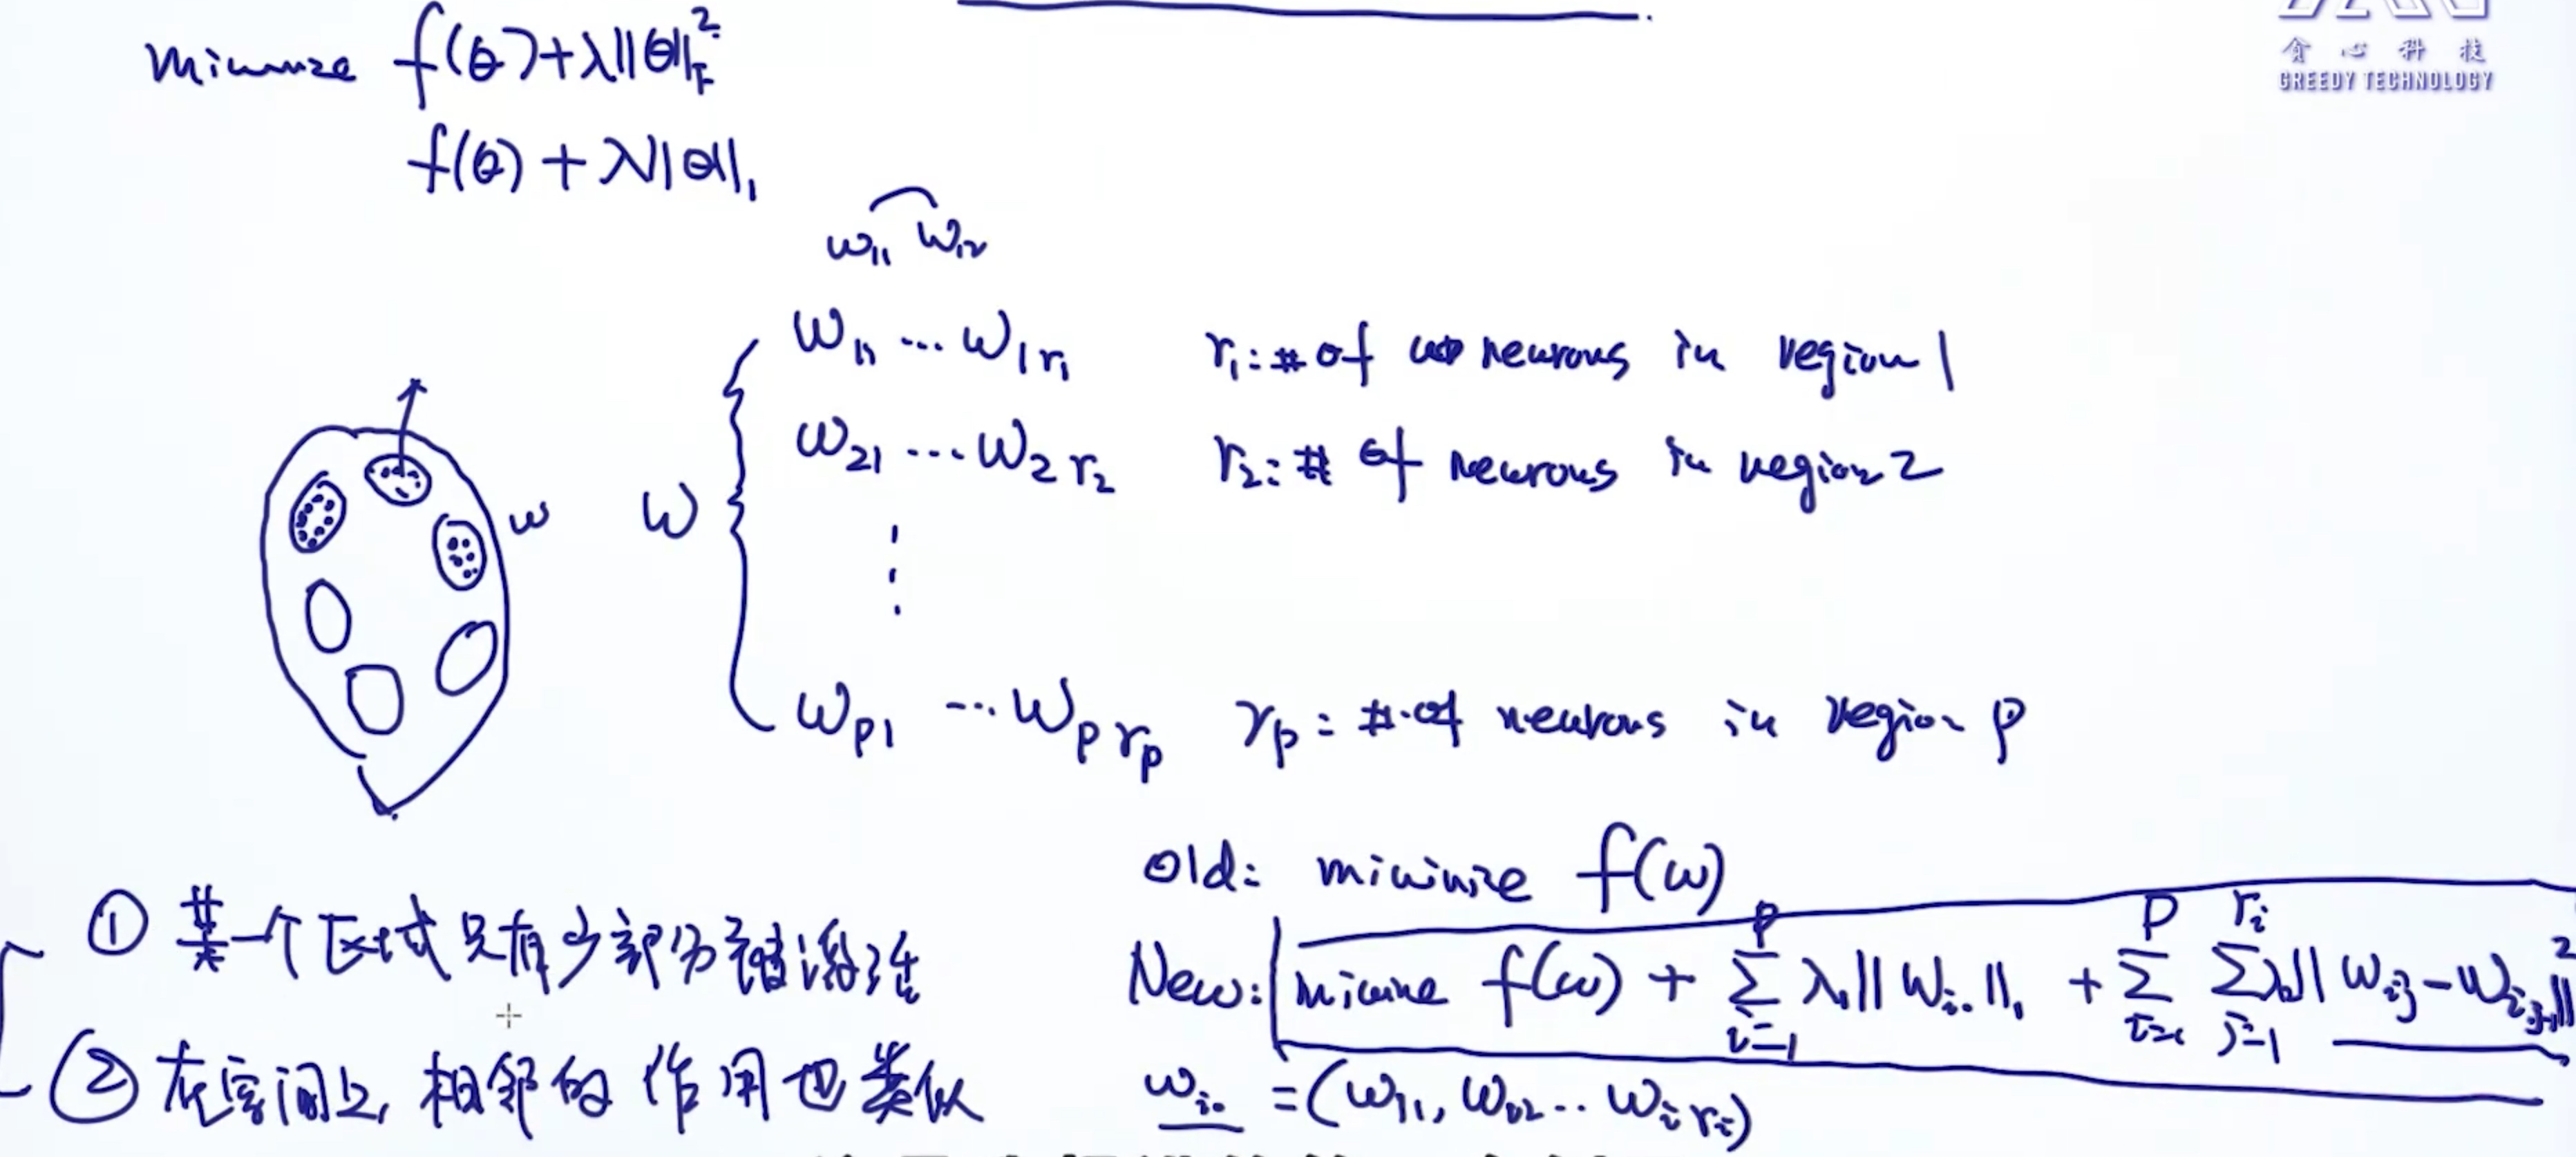 minimize f(θ)+λ||θ||_F^2
f(θ) + λ||θ||_1
贪心科技
GREEDY TECHNOLOGY
w_11 w_12
w_11 ... w_1r_1 r_1: # of neurons in region 1
w_21 ... w_2r_2 r_2: # of neurons in region 2
w
w
w_p1 ... w_pr_p r_p: # of neurons in region p
Old: minimize f(w)
New: minimize f(w) + Σ_{i=1}^{P} λ_1||w_i.||_1 + Σ_{i=1}^{P} Σ_{j=1}^{r_i} λ_2||w_ij - w_i,j-1||^2
w_i. = (w_i1, w_i2 ... w_ir_i)
① 某一个区域只有少部分被激活
② 在空间上, 相邻的作用也类似